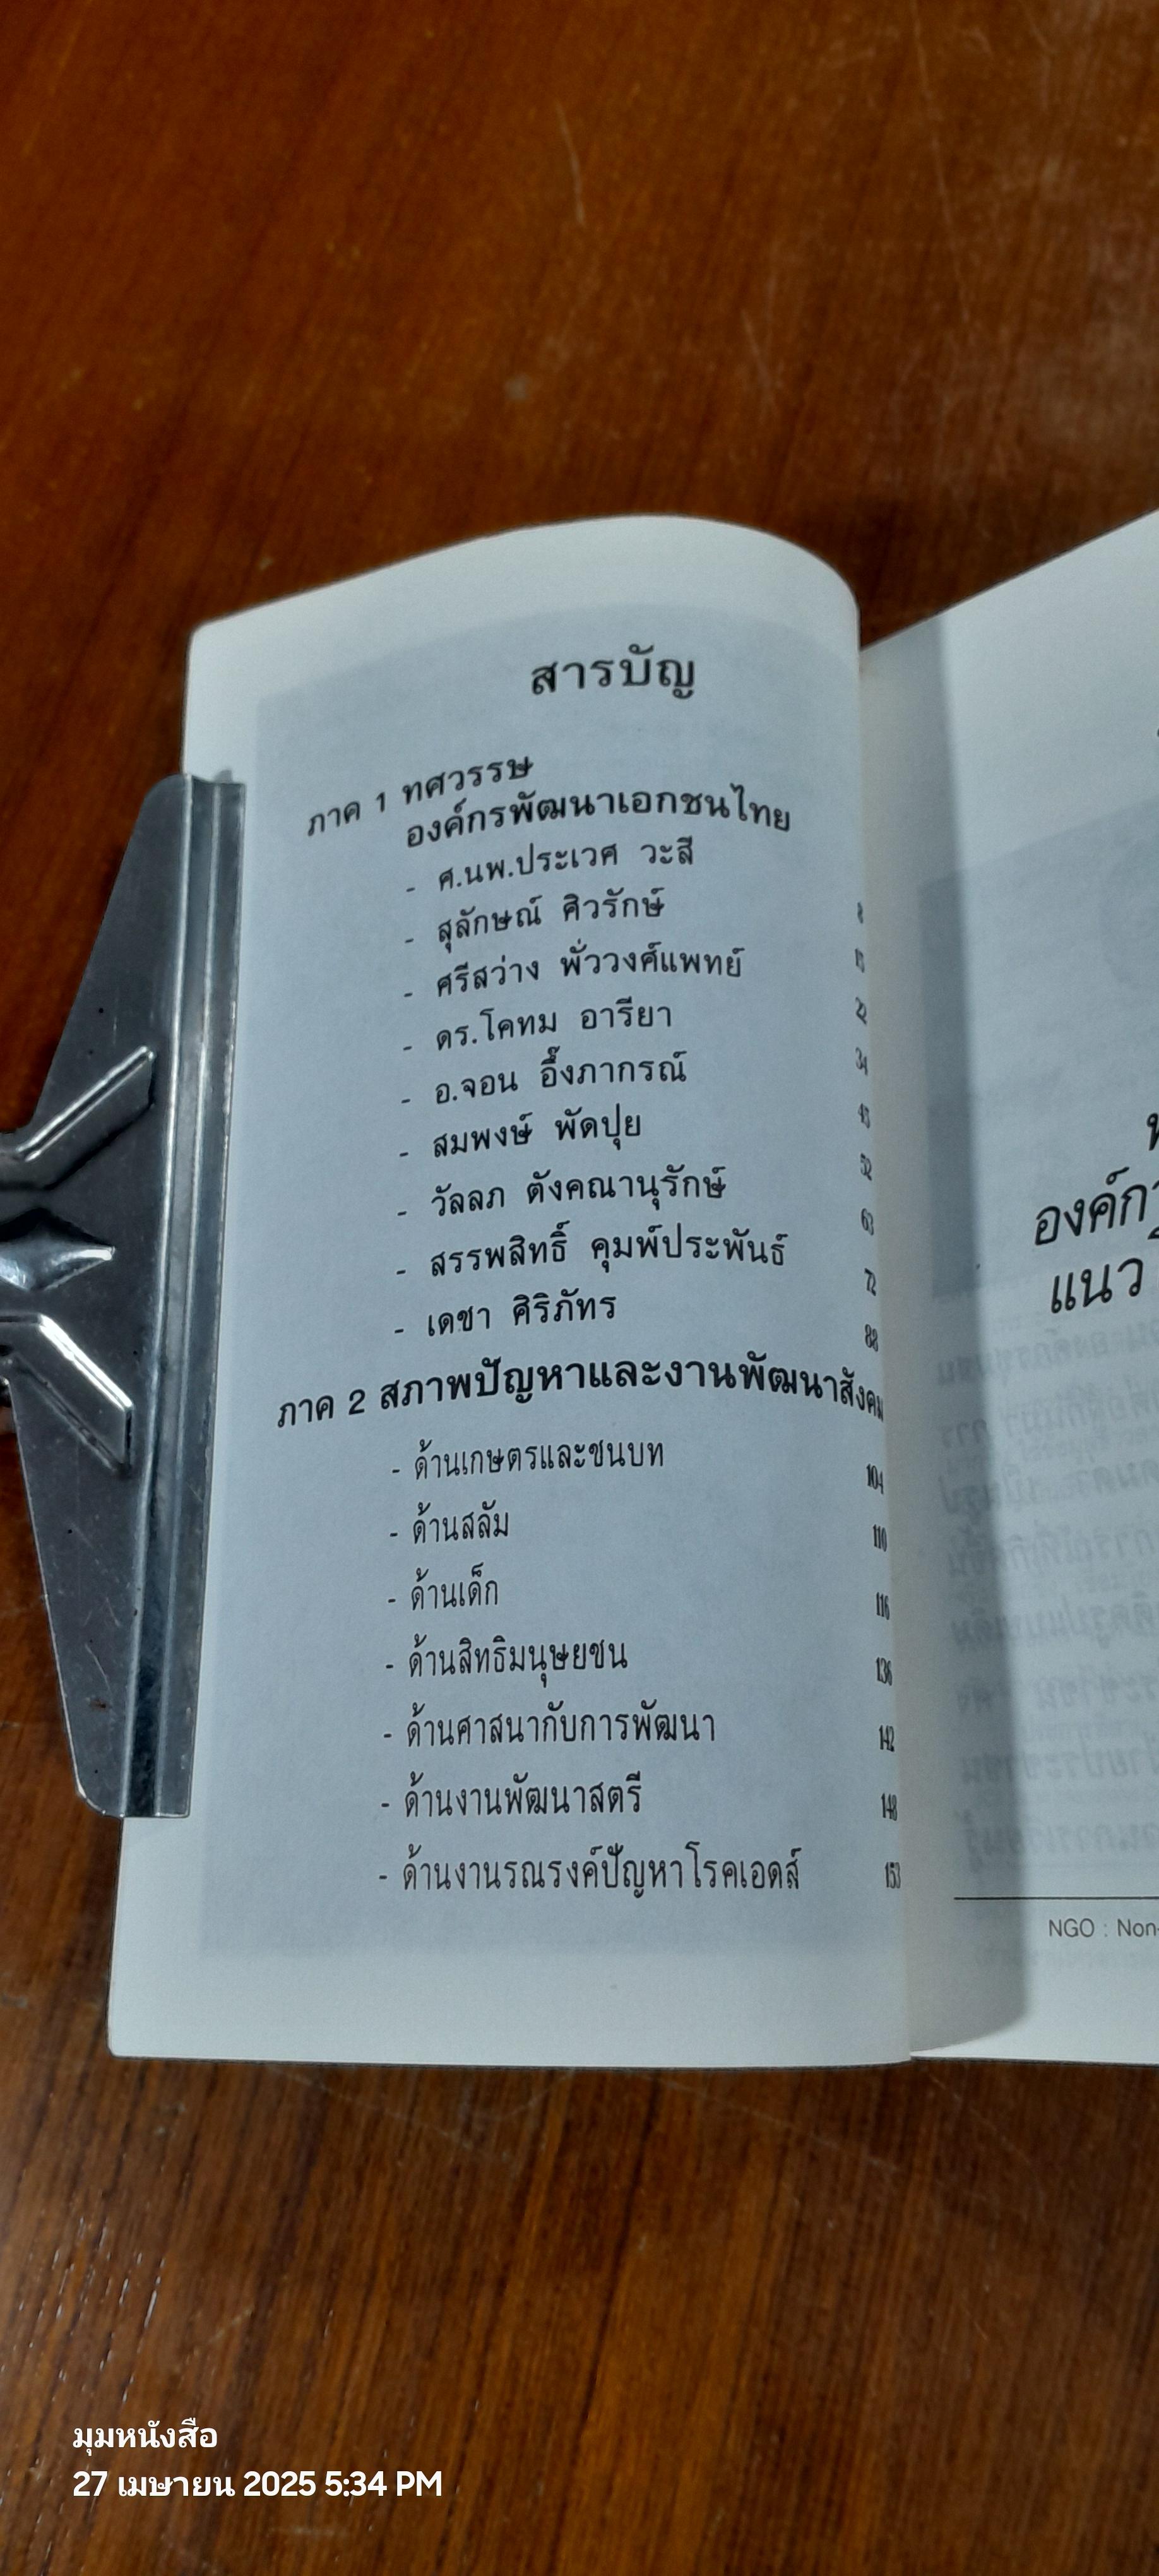 สารบัญ
ภาค 1 ทศวรรษ
องค์กรพัฒนาเอกชนไทย
- ศ.นพ.ประเวศ วะสี 8
- สุลักษณ์ ศิวรักษ์
- ศรีสว่าง พั่ววงศ์แพทย์ 22
- ดร.โคทม อารียา 34
- อ.จอน อึ๊งภากรณ์
- สมพงษ์ พัดปุย 52
- วัลลภ ตังคณานุรักษ์ 63
- สรรพสิทธิ์ คุมพ์ประพันธ์ 72
- เดชา ศิริภัทร 88
ภาค 2 สภาพปัญหาและงานพัฒนาสังคม
- ด้านเกษตรและชนบท 104
- ด้านสลัม 110
- ด้านเด็ก 116
- ด้านสิทธิมนุษยชน 136
- ด้านศาสนากับการพัฒนา 142
- ด้านงานพัฒนาสตรี 148
- ด้านงานรณรงค์ปัญหาโรคเอดส์ 153
องค์กา
แนว
NGO : Non-
มุมหนังสือ
27 เมษายน 2025 5:34 PM